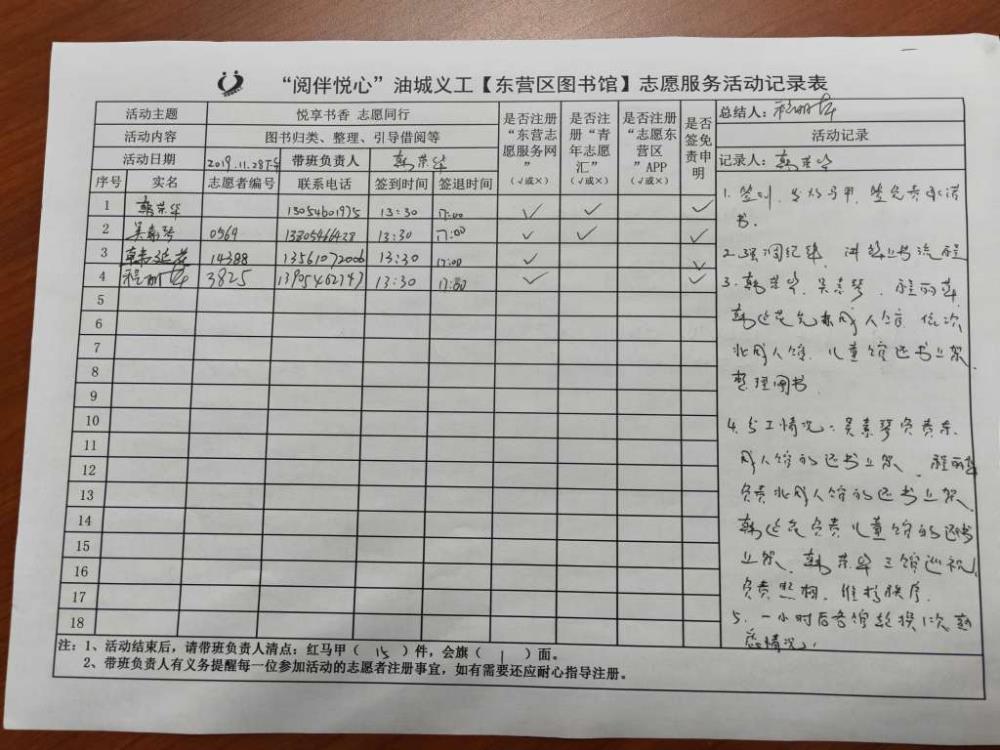 “阅伴悦心”油城义工【东营区图书馆】志愿服务活动记录表
活动主题 悦享书香 志愿同行
活动内容 图书归类、整理、引导借阅等
活动日期 2019.11.28下午 带班负责人 韩荣华
是否注册“东营志愿服务网”(√或×) 是否注册“青年志愿汇”(√或×) 是否注册“志愿东营区”APP(√或×) 是否签免责申明
总结人：程丽萍
活动记录
记录人：韩荣华
序号 实名 志愿者编号 联系电话 签到时间 签退时间
1 韩荣华 13054601975 13:30 17:00 √ √ √
2 吴素琴 0569 13305466428 13:30 17:00 √ √ √
3 韩延花 14388 13561072006 13:30 17:00 √ √
4 程丽萍 3825 13:30 17:00 √ √
5
6
7
8
9
10
11
12
13
14
15
16
17
18
1. 签到，发放马甲，签免责承诺
书.
2. 强调纪律，讲解上书流程
3. 韩荣华、吴素琴、程丽萍、
韩延花先东成人馆，依次
北成人馆、儿童馆还书上架、
整理图书
4. 分工情况：吴素琴负责东
成人馆的还书上架、程丽萍
负责北成人馆的还书上架、
韩延花负责儿童馆的还书
上架、韩荣华三馆巡视，
负责照相、维持秩序.
5. 一小时后各馆轮换1次
情况.
注：1、活动结束后，请带班负责人清点：红马甲（ 15 ）件，会旗（ 1 ）面。
2、带班负责人有义务提醒每一位参加活动的志愿者注册事宜，如有需要还应耐心指导注册。